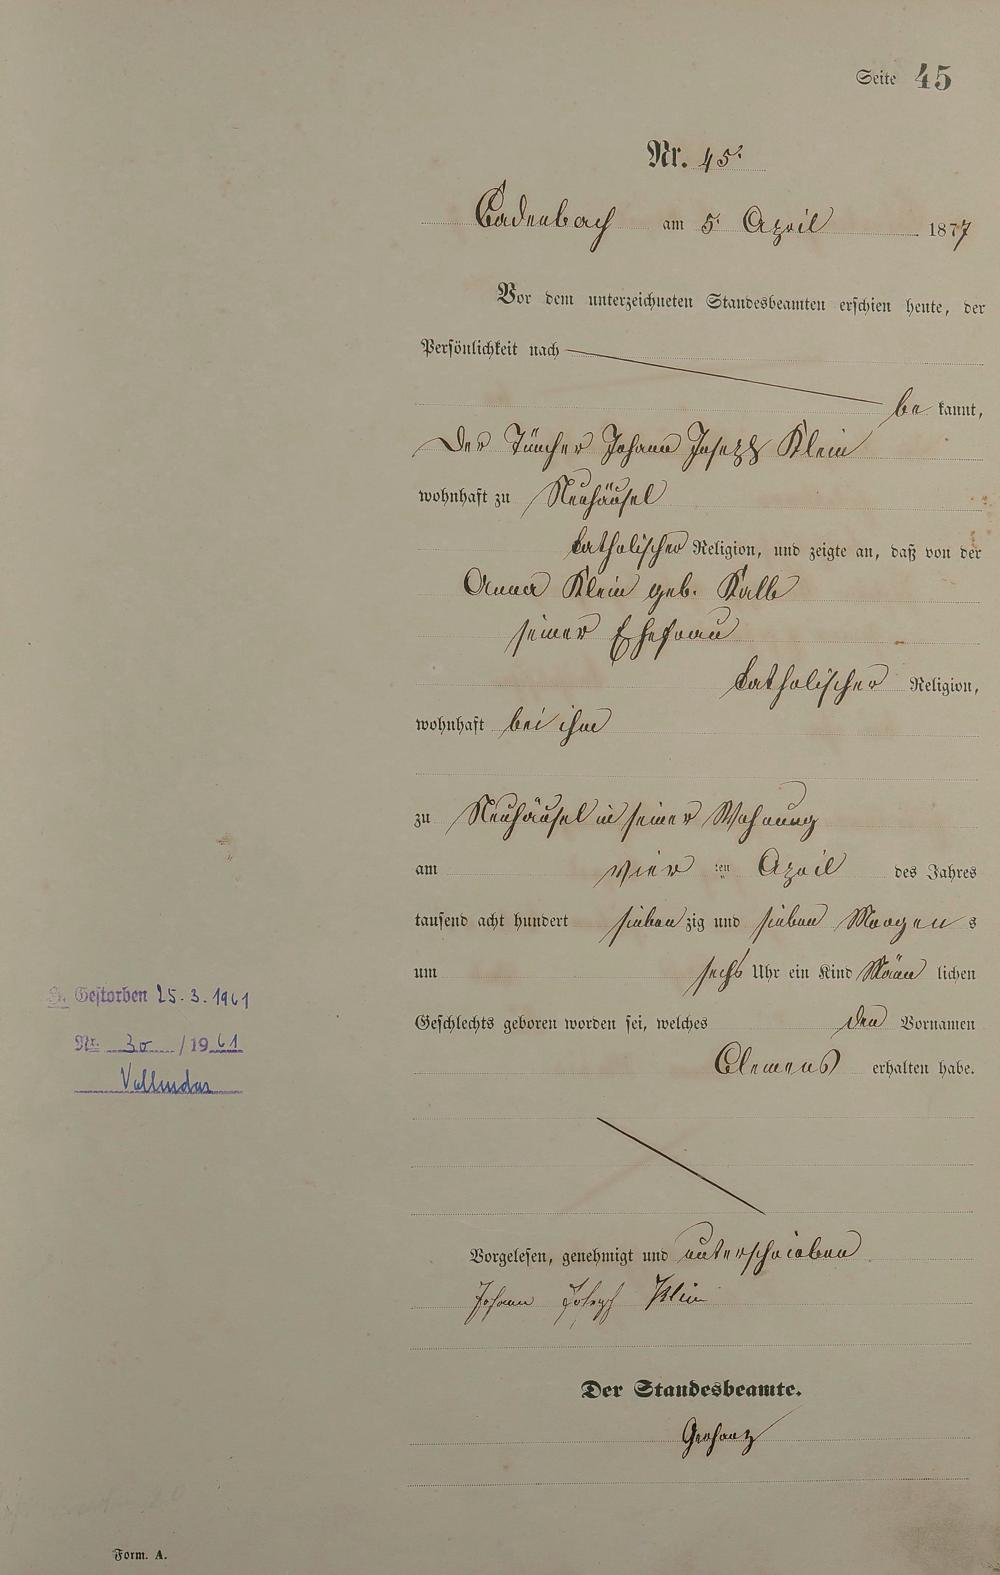 Seite 45
Nr. 45.
Cadenbach am 5. April 1877
Vor dem unterzeichneten Standesbeamten erschien heute, der
Persönlichkeit nach
be kannt,
Der Tüncher Johann Joseph Klein
wohnhaft zu Neuhäusel
katholischer Religion, und zeigte an, daß von der
Anna Klein geb. Kalb
seiner Ehefrau
katholischer Religion,
wohnhaft bei ihm
zu Neuhäusel in seiner Wohnung
am vier ten April des Jahres
tausend acht hundert sieben zig und sieben Morgen s
um sechs Uhr ein Kind Männ lichen
Geschlechts geboren worden sei, welches den Vornamen
Clemens erhalten habe.
Gestorben 25.3.1961
Nr. 30 /1961
Vallendar
Vorgelesen, genehmigt und unterschrieben
Johann Joseph Klein
Der Standesbeamte.
Form. A.